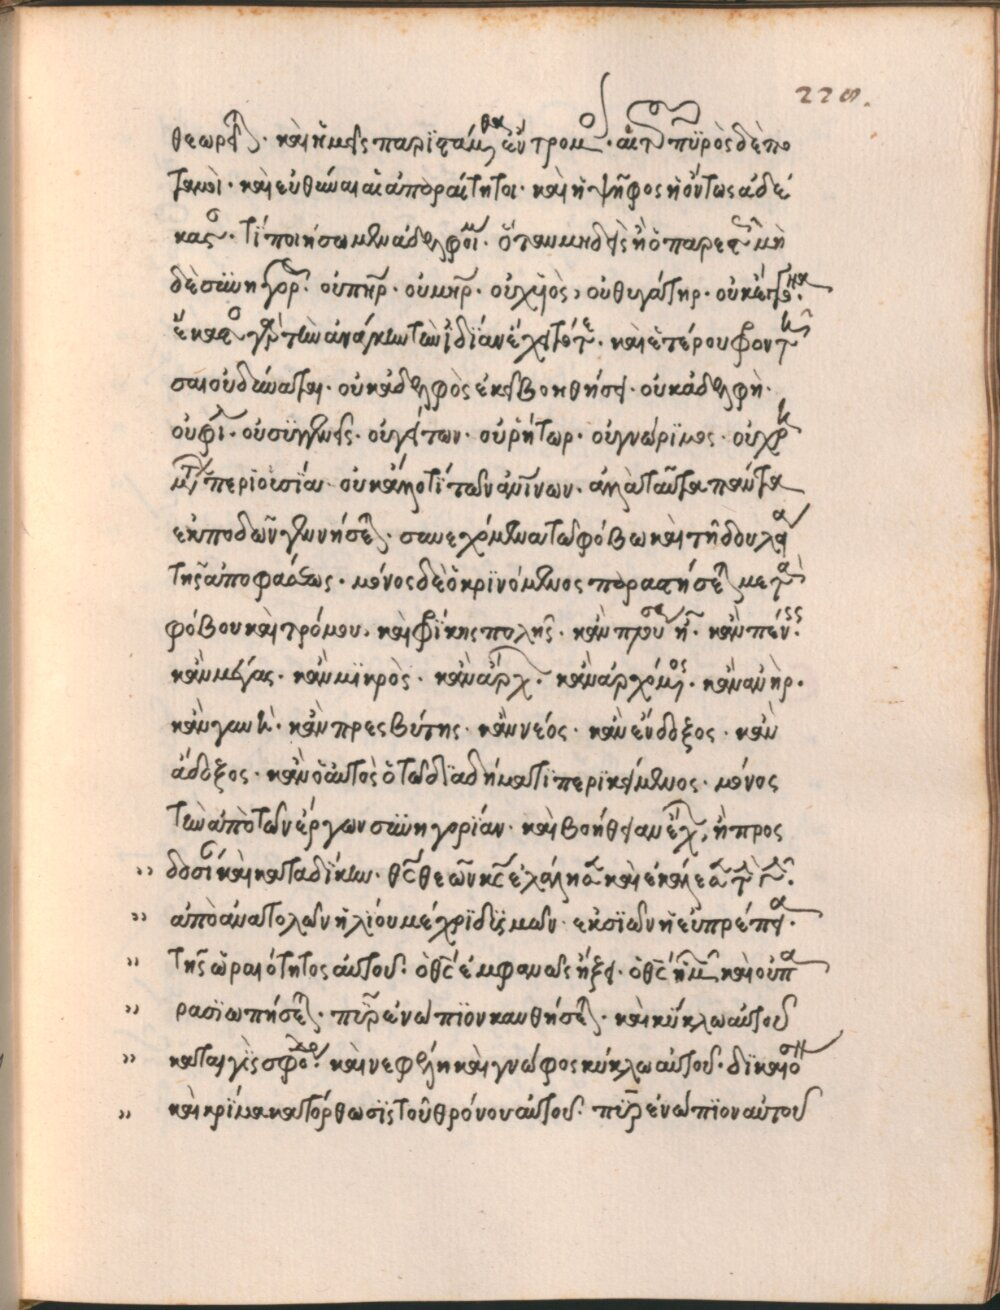 228.
θεωρεῖ · καὶ ἡμεῖς παριστάμεθα ἔντρομοι · αἵ τε πϋρὸς δὲ πο
ταμοὶ · καὶ εὐθῦναι αἱ ἀπὸραίτητοι · καὶ ἡ ψῆφος ἡ ὄντως ἀδέ
καστος · τί ποιήσωμεν ἀδελφοί μου · ὅταν μηδεὶς ἦ ὁ παρεστὼς μὴ
δὲ σϋνηγορῶν · οὐ πη̅ρ · οὐ μη̅ρ · οὐχ ϋἱὸς, οὐ θυγάτηρ ·
ἕκαστος γὰρ τὴν ἀνάγκην τὴν ἰδίαν ἔχει τότε · καὶ ἑτέρου φροντί
σαι οὐ δύναται · οὐκ ἀδελφὸς ἐκεῖ βοηθήσει · οὐκ ἀδελφὴ ·
οὐ φίλοι · οὐ σϋγγενεῖς · οὐ γείτων · οὐ ῥήτωρ · οὐ γνώρϊμος · οὐ χρη
μάτων περϊουσία · οὐκ ἄλλο τὶ τῶν ἀμϊνων · ἀλλὰ ταῦτα πάντα
ἐκποδὼν γεννήσεται · συνεχόμενα τῶ φόβω καὶ τῆ δουλεία
τῆς ἀποφάσεως · μόνος δὲ ὁ κρϊνόμενος παραστήσεται μετὰ
φόβου καὶ τρόμου, καὶ φρίκης πολλῆς · κἂν πλούσιος ἦ · κἂν πένης ·
κἂν μέγας · κἂν μϊκρὸς · κἂν ἄρχων · κἂν ἀρχόμενος · κἂν ἀνὴρ ·
κἂν γυνὴ · κἂν πρεσβύτης · κἂν νέος · κἂν ἔνδοξος · κἂν
ἄδοξος · κἂν ὁ αὐτὸς ὁ τῶ δϊαδήματϊ περϊκείμενος · μόνος
τὴν ἀπὸ τῶν ἔργων σϋνηγορΐαν · καὶ βοήθειαν ἔχων, ἢ προς
δοσίαν καὶ καταδίκην · θς̅ θεῶν κς̅ ἐλάλησε καὶ ἐκάλεσε τὴν γῆν ·
ἀπὸ ἀνατολῶν ἡλίου μέχρϊ δϋσμῶν · ἐκ σϊὼν ἡ εὐπρέπεια ·
τῆς ὡραιότητος αὐτοῦ · ὁ θς̅ ἐμφανῶς ἥξει · ὁ θς̅ ἡμῶν καὶ οὐ πα
ρασϊωπήσεται · πῦρ ἐνώπϊον καυθήσεται · καὶ κύκλω αὐτοῦ
καταιγὶς σφόδρα · καὶ νεφέλη καὶ γνώφος κύκλω αὐτοῦ · δϊκαιοσύνη
καὶ κρίμα κατόρθωσϊς τοῦ θρόνου αὐτοῦ · πῦρ ἐνώπϊον αὐτοῦ